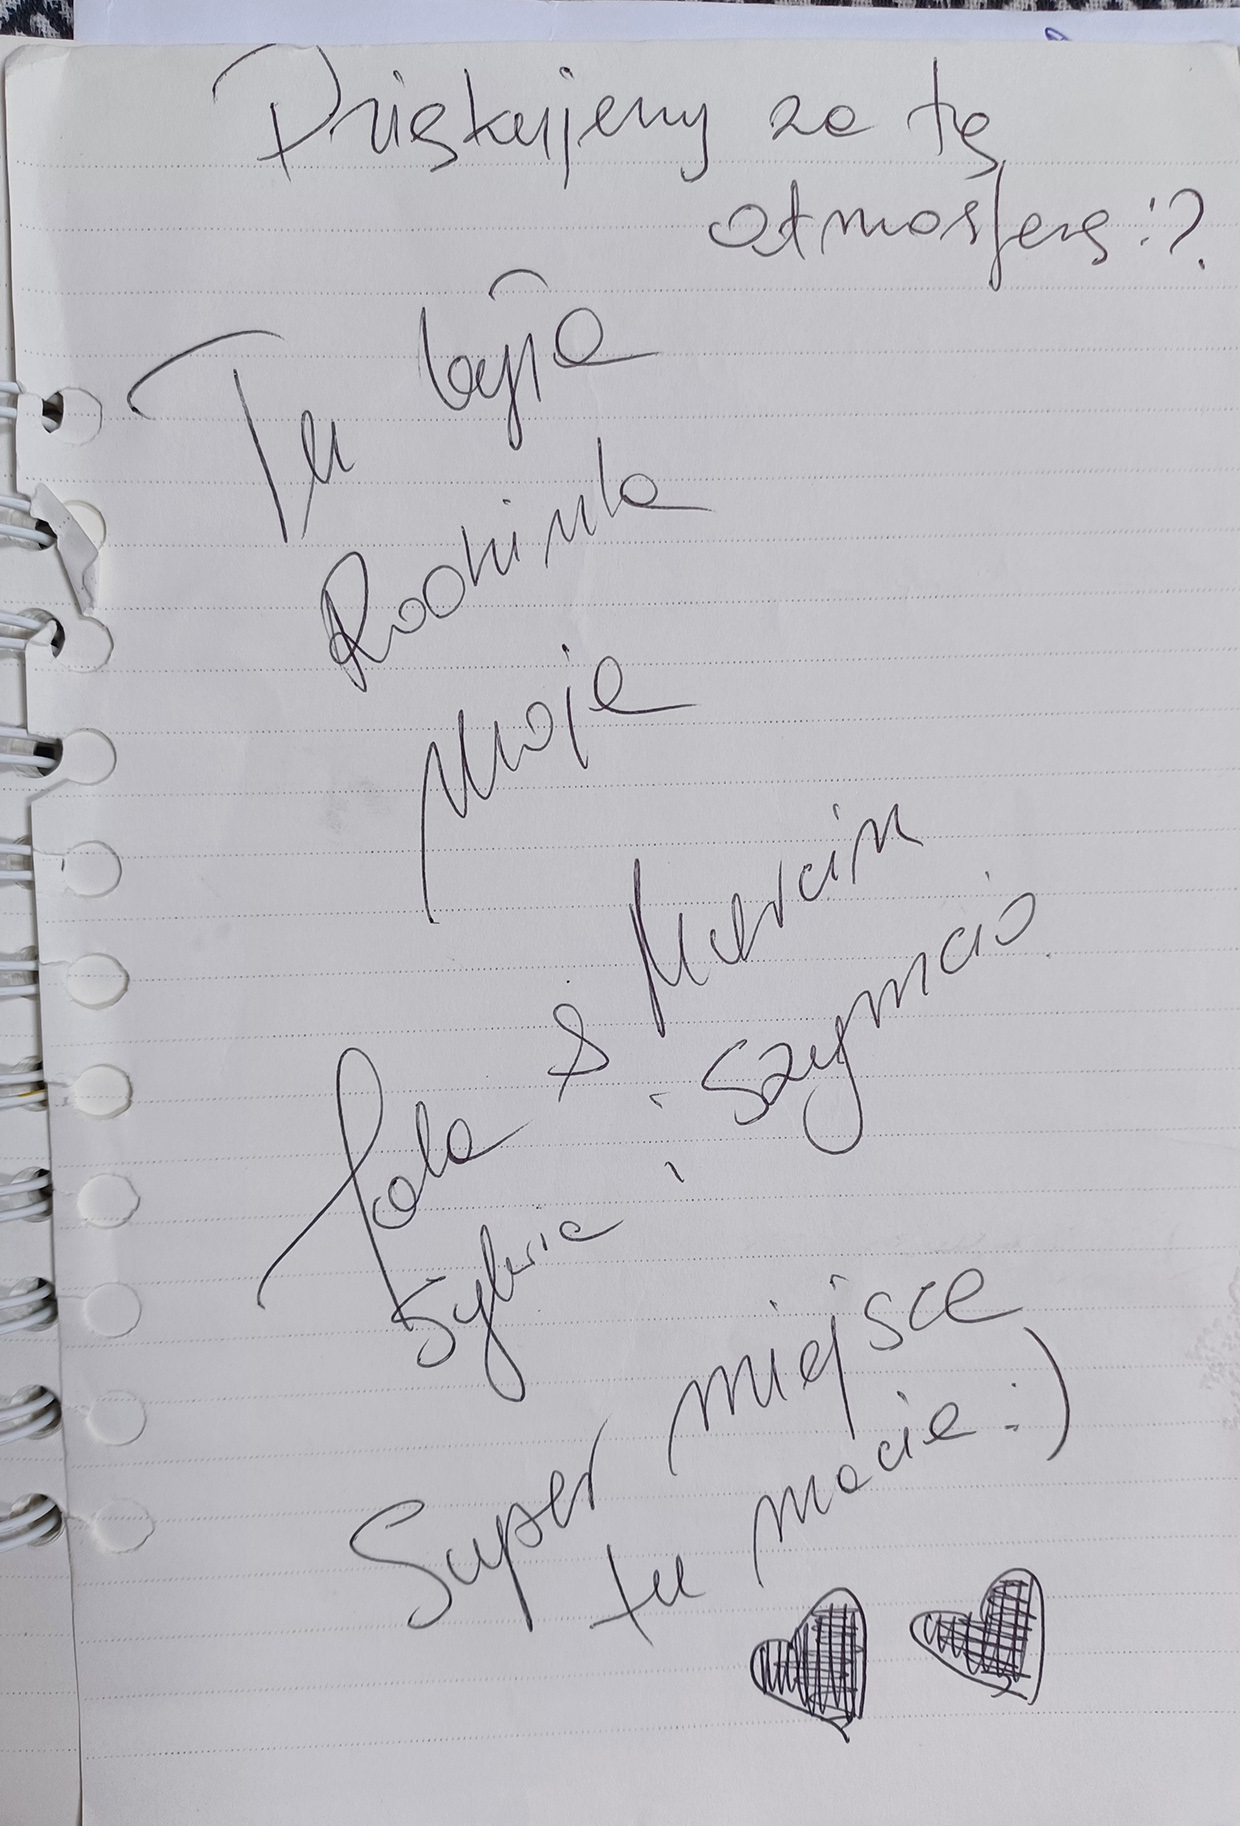 Dziękujemy za tę
atmosferę :?
Tu była
Rodzinka
Moja
Lola & Marcin
Sylwia i Szymcio
Super miejsce
tu macie :)